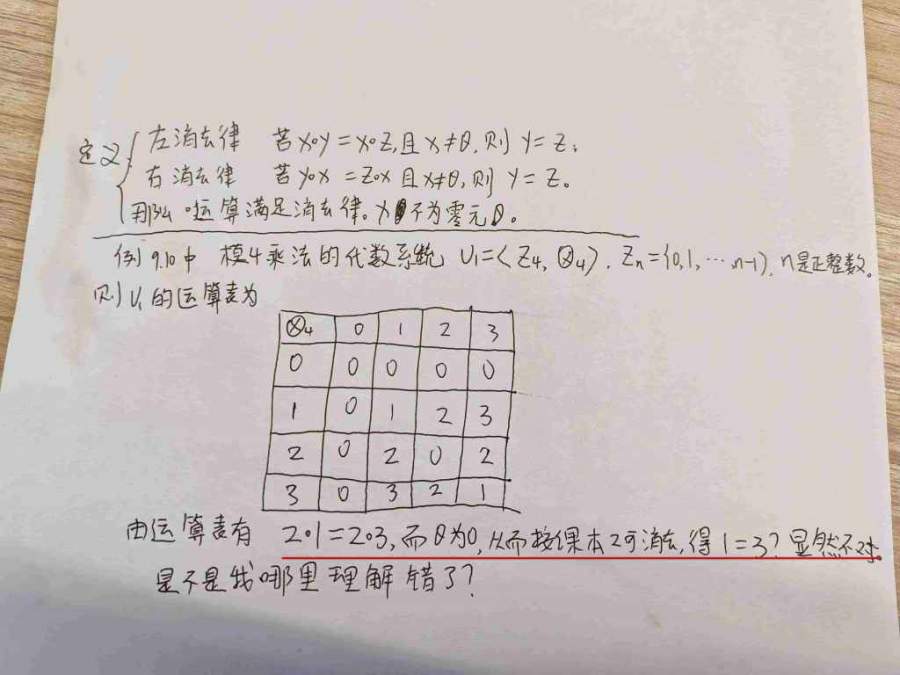 定义 左消去律 若x∘y=x∘z,且x≠θ,则y=z;
右消去律 若y∘x=z∘x且x≠θ,则y=z。
那么∘运算满足消去律。x不为零元θ。
例9.10中 模4乘法的代数系统 U₁=<Z₄,⊗₄>, Zₙ={0,1,…n-1}, n是正整数。
则U₁的运算表为
⊗₄ 0 1 2 3
0 0 0 0 0
1 0 1 2 3
2 0 2 0 2
3 0 3 2 1
由运算表有 2∘1=2∘3,而θ为0,从而按课本2可消去,得1=3?显然不对。
是不是我哪里理解错了?